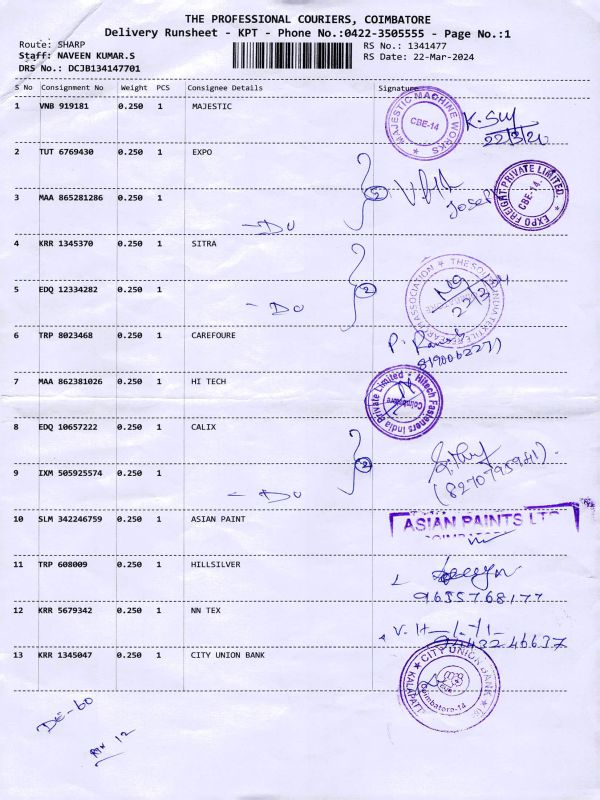 THE PROFESSIONAL COURIERS, COIMBATORE
Delivery Runsheet - KPT - Phone No.:0422-3505555 - Page No.:1
Route: SHARP RS No.: 1341477
Staff: NAVEEN KUMAR.S RS Date: 22-Mar-2024
DRS No.: DCJB134147701
S No Consignment No Weight PCS Consignee Details Signature
1 VNB 919181 0.250 1 MAJESTIC
MAJESTIC MACHINE WORKS CBE-14
2 TUT 6769430 0.250 1 EXPO
EXPO FREIGHT PRIVATE LIMITED CBE-14.
3 MAA 865281286 0.250 1
Joseph
- Do
4 KRR 1345370 0.250 1 SITRA
5 EDQ 12334282 0.250 1
- Do
2
6 TRP 8023468 0.250 1 CAREFOURE
7 MAA 862381026 0.250 1 HI TECH
Hitech Fasteners India Private Limited Coimbatore
8 EDQ 10657222 0.250 1 CALIX
2
9 IXM 505925574 0.250 1
- Do
10 SLM 342246759 0.250 1 ASIAN PAINT
ASIAN PAINTS LTD
11 TRP 608009 0.250 1 HILLSILVER
9655768177
12 KRR 5679342 0.250 1 NN TEX
13 KRR 1345047 0.250 1 CITY UNION BANK
CITY UNION BANK
Coimbatore-14